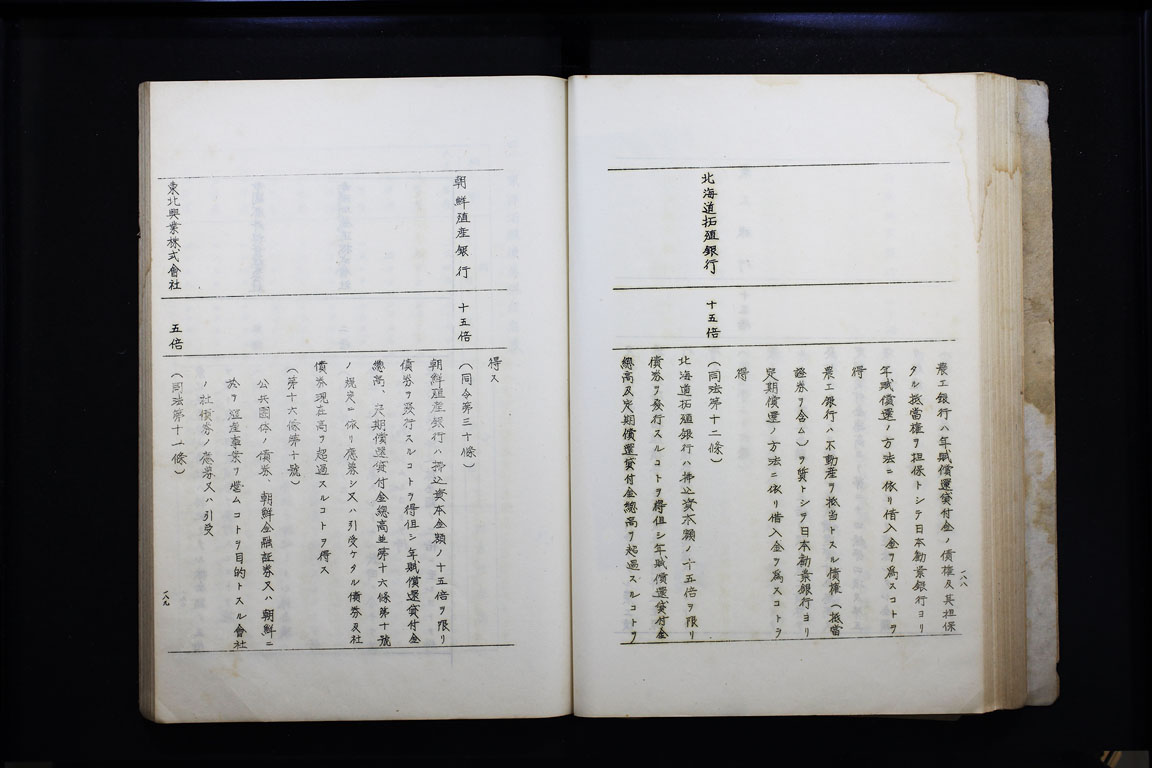 農工銀行ハ年賦償還貸付金ノ債權及其担保
タル抵當權ヲ担保トシテ日本勧業銀行ヨリ
年賦償還ノ方法ニ依リ借入金ヲ爲スコトヲ
得
農工銀行ハ不動産ヲ抵当トスル債權(抵當
證券ヲ含ム)ヲ質トシテ日本勧業銀行ヨリ
定期償還ノ方法ニ依リ借入金ヲ爲スコトヲ
得
北海道拓殖銀行
十五倍
(同法第十二條)
北海道拓殖銀行ハ拂込資本額ノ十五倍ヲ限リ
債券ヲ發行スルコトヲ得但シ年賦償還貸付金
總高及定期償還貸付金總高ヲ超過スルコトヲ
一八八
得ス
朝鮮殖産銀行
十五倍
(同令第三十條)
朝鮮殖産銀行ハ拂込資本金額ノ十五倍ヲ限リ
債券ヲ發行スルコトヲ得但シ年賦償還貸付金
總高、定期償還貸付金總高並第十六條第十號
ノ規定ニ依リ應募シ又ハ引受ケタル債券及社
債券現在高ヲ超過スルコトヲ得ス
(第十六條第十號)
公共團体ノ債券、朝鮮金融証券又ハ朝鮮ニ
於テ殖産事業ヲ營ムコトヲ目的トスル會社
ノ社債券ノ應募又ハ引受
東北興業株式會社
五倍
(同法第十一條)
一八九